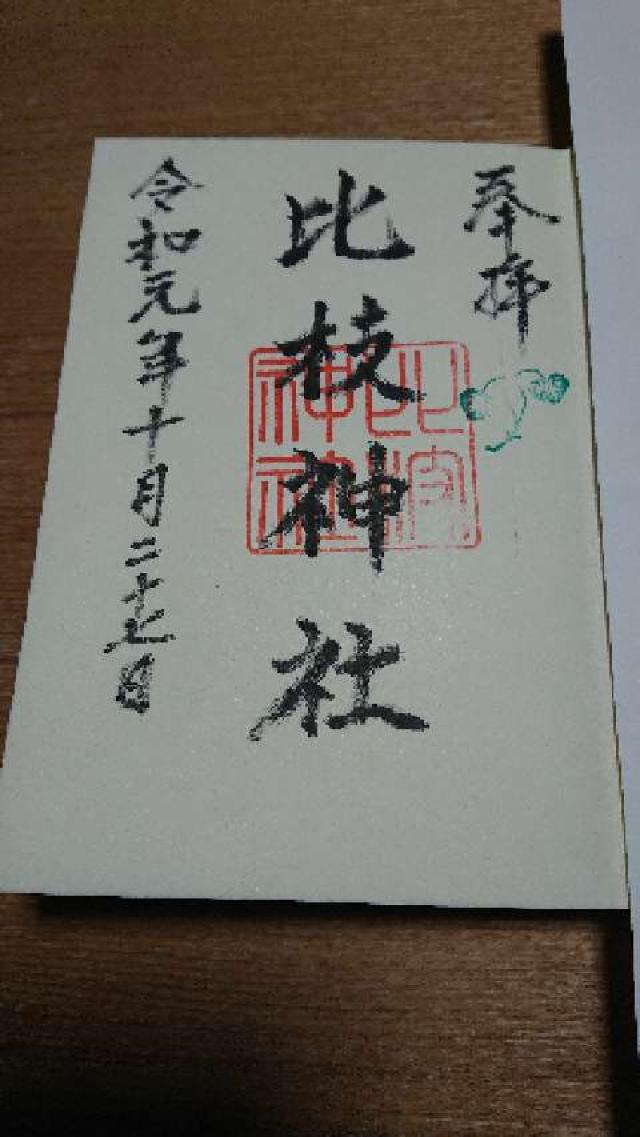 奉拝
比枝神社
令和元年十月二十七日